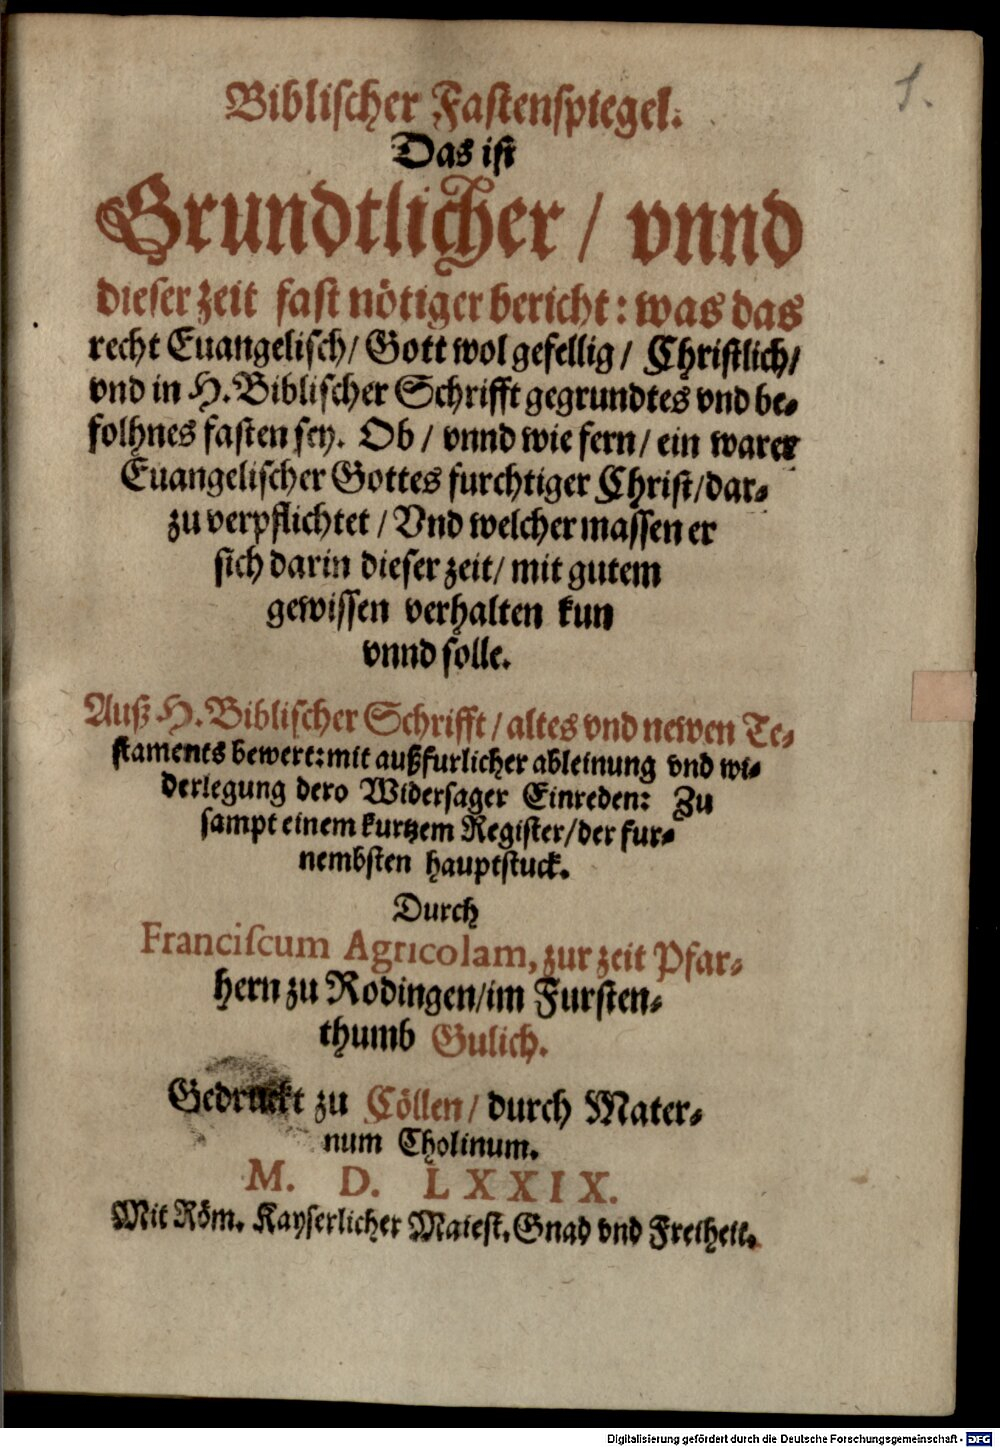 1.
Biblischer Fastenspiegel.
Das ist
Grundtlicher / vnnd
dieser zeit fast nötiger bericht: was das
recht Euangelisch / Gott wol gefellig / Christlich /
vnd in H. Biblischer Schrifft gegrundtes vnd be-
folhnes fasten sey. Ob / vnnd wie fern / ein warer
Euangelischer Gottes furchtiger Christ / dar-
zu verpflichtet / Vnd welcher massen er
sich darin dieser zeit / mit gutem
gewissen verhalten kun
vnnd solle.
Auß H. Biblischer Schrifft / altes vnd newen Te-
staments bewert: mit außfurlicher ableinung vnd wi-
derlegung dero Widersager Einreden: Zu
sampt einem kurtzem Register / der fur-
nembsten hauptstuck.
Durch
Franciscum Agricolam, zur zeit Pfar-
hern zu Rodingen / im Fursten-
thumb Gulich.
Gedruckt zu Cöllen / durch Mater-
num Cholinum.
M. D. LXXIX.
Mit Röm. Kayserlicher Maiest. Gnad vnd Freiheit.
Digitalisierung gefördert durch die Deutsche Forschungsgemeinschaft - DFG